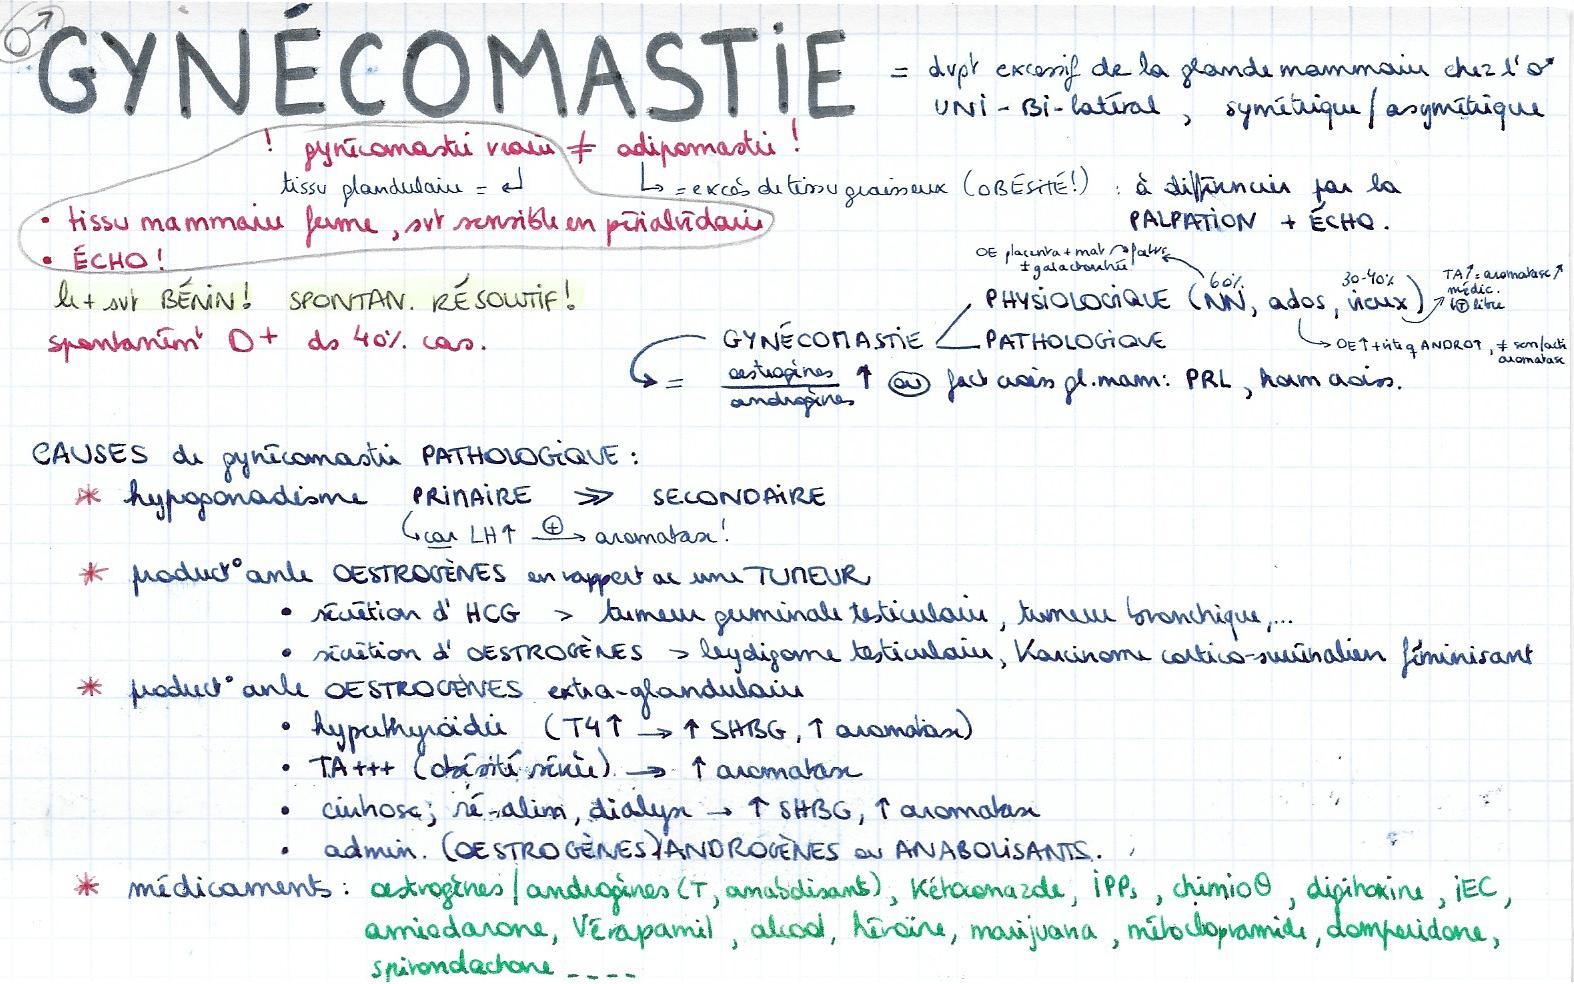 ♂ GYNÉCOMASTIE
= dvpt excessif de la glande mammaire chez l'♂
UNI-Bi-latéral, symétrique/asymétrique
! gynécomastie vraie ≠ adipomastie !
tissu glandulaire = ↵ ↳ = excès de tissu graisseux (OBÉSITÉ!) : à différencier par la
PALPATION + ÉCHO.
• tissu mammaire ferme, svt sensible en périalvéolaire
• ÉCHO!
le + svt BÉNIN! SPONTAN. RÉSOLUTIF!
spontaném^t D+ ds 40% cas.
OE placenta + mat ↷ fœtus
± galactorrhée
60% 30-40%
PHYSIOLOGIQUE (NN, ados, vieux)
TA↑ = aromatase↑
médic.
↓Ⓣ libre
→ OE↑ + vite q ANDRO↑, ≠
aromatase
GYNÉCOMASTIE
PATHOLOGIQUE
= oestrogènes / androgènes ↑ ou fact crois gl. mam: PRL, horm croiss.
CAUSES de gynécomastie PATHOLOGIQUE :
* hypogonadisme PRIMAIRE >> SECONDAIRE
↳ car LH↑ ⊕→ aromatase!
* product° anle OESTROGÈNES en rapport ac une TUMEUR
• sécrétion d'HCG > tumeur germinale testiculaire, tumeur bronchique,...
• sécrétion d'OESTROGÈNES > leydigome testiculaire, Karcinome cortico-surrénalien féminisant
* product° anle OESTROGÈNES extra-glandulaire
• hyperthyroïdie (T4↑ → ↑ SHBG, ↑ aromatase)
• TA+++ (obésité sévère) → ↑ aromatase
• cirrhose; ré-alim, dialyse → ↑ SHBG, ↑ aromatase
• admin. (OESTROGÈNES)/ANDROGÈNES ou ANABOLISANTS.
* médicaments : oestrogènes/androgènes (T, anabolisant), Kétoconazole, iPPs, chimioθ, digitoxine, iEC,
amiodarone, Vérapamil, alcool, héroïne, marijuana, métoclopramide, dompéridone,
spironolactone ----